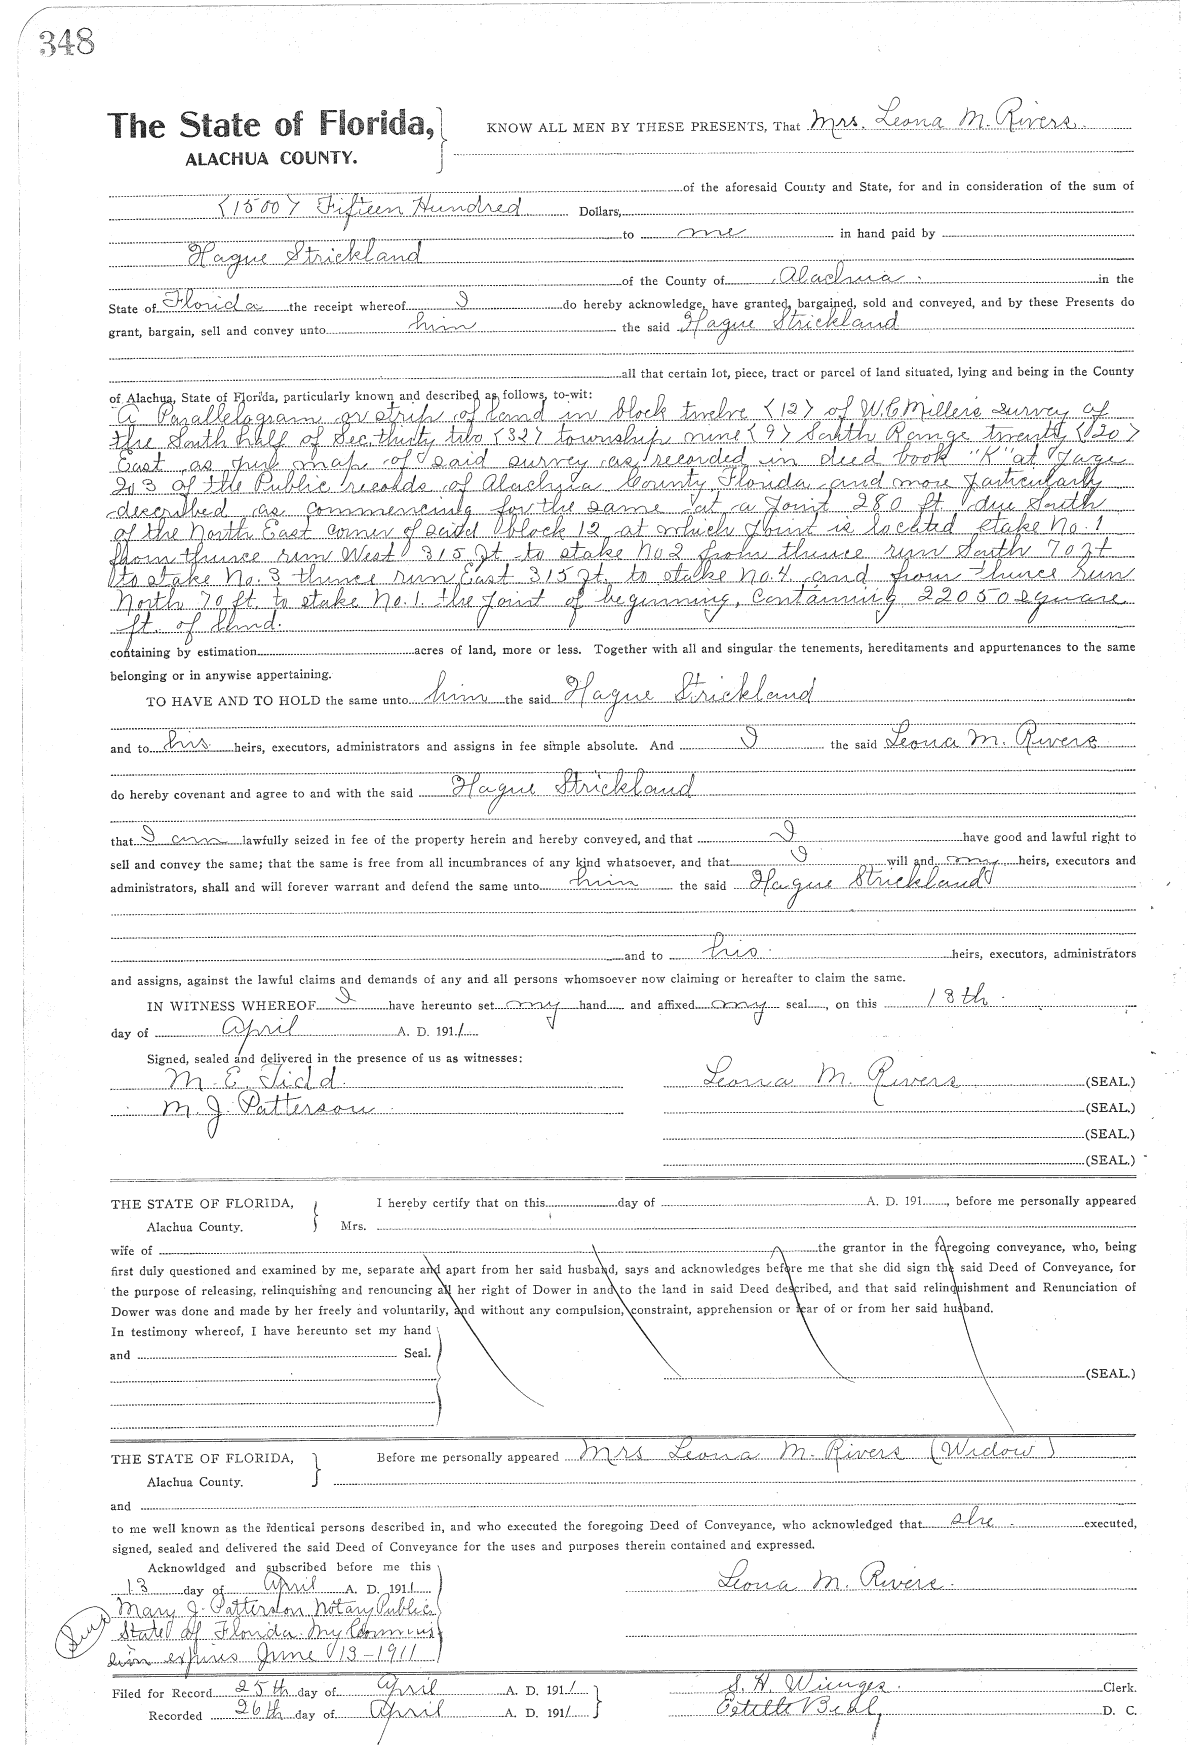 348
The State of Florida, KNOW ALL MEN BY THESE PRESENTS, That Mrs. Leona M. Rivers.
ALACHUA COUNTY.
of the aforesaid County and State, for and in consideration of the sum of
(1500) Fifteen Hundred Dollars,
to me in hand paid by
Hague Strickland
of the County of Alachua. in the
State of Florida the receipt whereof I do hereby acknowledge, have granted, bargained, sold and conveyed, and by these Presents do
grant, bargain, sell and convey unto him the said Hague Strickland
all that certain lot, piece, tract or parcel of land situated, lying and being in the County
of Alachua, State of Florida, particularly known and described as follows, to-wit:
A Parallelogram or strip of land in block twelve (12) of W.C Millers survey of
the South half of Sec. thirty two (32) township nine (9) South Range twenty (20)
East as per map of said survey as recorded in deed book "K" at page
203 of the Public records of Alachua County Florida and more particularly
described as commencing for the same at a point 280 ft. due South
of the North East corner of said block 12 at which point is located stake No. 1
from thence run West 315 ft to stake No 2 from thence run South 70 ft
to stake No. 3 thence run East 315 ft. to stake No. 4 and from thence run
North 70 ft. to stake No. 1. the point of beginning, Containing 22050 square
ft. of land.
containing by estimation acres of land, more or less. Together with all and singular the tenements, hereditaments and appurtenances to the same
belonging or in anywise appertaining.
TO HAVE AND TO HOLD the same unto him the said Hague Strickland
and to his heirs, executors, administrators and assigns in fee simple absolute. And I the said Leona M. Rivers
do hereby covenant and agree to and with the said Hague Strickland
that I am lawfully seized in fee of the property herein and hereby conveyed, and that I have good and lawful right to
sell and convey the same; that the same is free from all incumbrances of any kind whatsoever, and that I will and my heirs, executors and
administrators, shall and will forever warrant and defend the same unto him the said Hague Strickland
and to his heirs, executors, administrators
and assigns, against the lawful claims and demands of any and all persons whomsoever now claiming or hereafter to claim the same.
IN WITNESS WHEREOF I have hereunto set my hand and affixed my seal, on this 13th
day of April A. D. 1911
Signed, sealed and delivered in the presence of us as witnesses:
M. E. Tidd. Leona M. Rivers (SEAL.)
M. J. Patterson (SEAL.)
(SEAL.)
(SEAL.)
THE STATE OF FLORIDA, I hereby certify that on this day of A. D. 191 , before me personally appeared
Alachua County. Mrs.
wife of the grantor in the foregoing conveyance, who, being
first duly questioned and examined by me, separate and apart from her said husband, says and acknowledges before me that she did sign the said Deed of Conveyance, for
the purpose of releasing, relinquishing and renouncing all her right of Dower in and to the land in said Deed described, and that said relinquishment and Renunciation of
Dower was done and made by her freely and voluntarily, and without any compulsion, constraint, apprehension or fear of or from her said husband.
In testimony whereof, I have hereunto set my hand
and Seal.
(SEAL.)
THE STATE OF FLORIDA, Before me personally appeared Mrs Leona M. Rivers (Widow)
Alachua County.
and
to me well known as the identical persons described in, and who executed the foregoing Deed of Conveyance, who acknowledged that she executed,
signed, sealed and delivered the said Deed of Conveyance for the uses and purposes therein contained and expressed.
Acknowldged and subscribed before me this
13 day of April A. D. 1911 Leona M. Rivers.
Mary J. Patterson Notary Public
State of Florida. My Commis
sion expires June 13-1911
Filed for Record 25th day of April A. D. 1911 S. H. Clerk.
Recorded 26th day of April A. D. 1911 Estelle D. C.